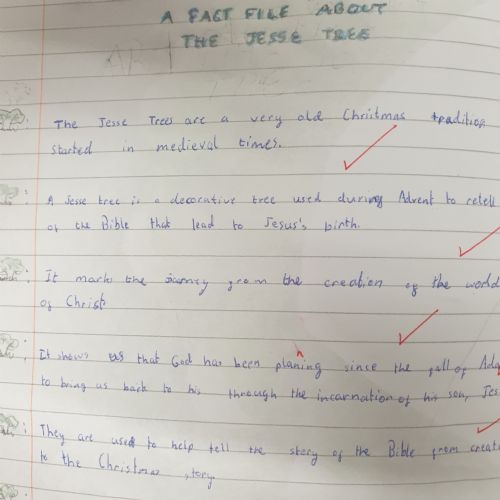 A FACT FILE ABOUT
THE JESSE TREE
The Jesse Trees are a very old Chriitmas tradition
started in medieval times.
A Jesse tree is a decorative tree used during Advent to retell
of the Bible that lead to Jesus's birth.
It marks the journey from the creation of the world
of Christ
It shows us that God has been planing since the fall of Ada
to bring us back to his through the incarnation of his son, Jes
They are used to help tell the story of the Bible from creati
to the Christmas story.